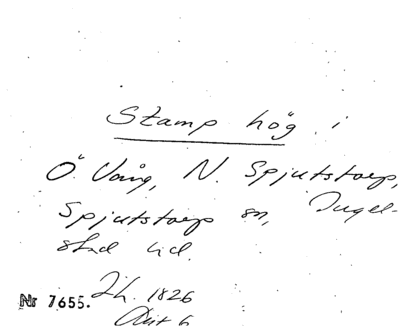 Stamp hög i
Ö. Vång, N. Spjutstorp,
Spjutstorp sn, Ingel-
stad hd.
Nr 7655. 1826